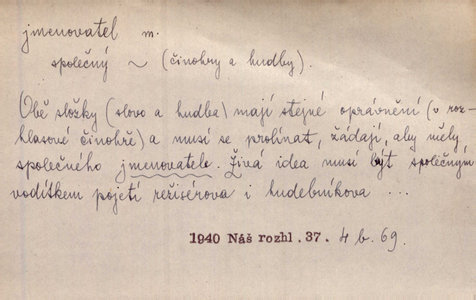 jmenovatel m.
společný ~ (činohry a hudby).
Obě složky (slovo a hudba) mají stejné oprávnění (v roz-
hlasové činohře) a musí se prolínat, žádají, aby měly
společného jmenovatele. Živá idea musí být společným
vodítkem pojetí režisérova i hudebníkova ...
1940 Náš rozhl. 37. 4 b. 69.